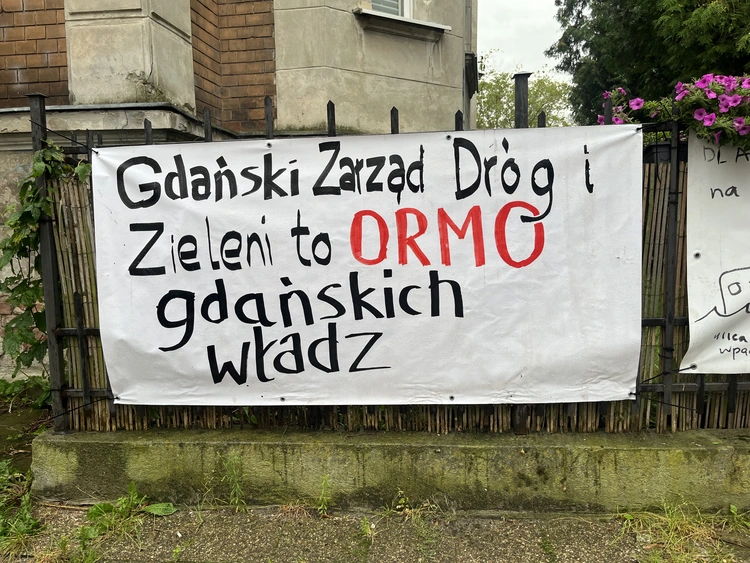 Gdański Zarząd Dróg i
Zieleni to ORMO
gdańskich
władz
na